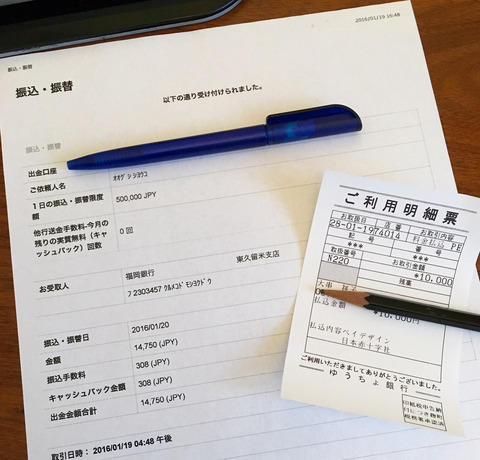 2016/01/19 16:48
振込・振替
振込・振替
以下の通り受け付けられました。
振込・振替
出金口座
ご依頼人名
1日の振込・振替限度額
500,000 JPY
他行送金手数料-今月の残りの実質無料(キャッシュバック)回数
0 回
お受取人
福岡銀行
東久留米支店
7 2303457 ｸﾙﾒｺﾄﾞﾓｼﾖｸﾄﾞｳ
振込・振替日
2016/01/20
金額
14,750 (JPY)
振込手数料
308 (JPY)
キャッシュバック金額
308 (JPY)
出金金額合計
14,750 (JPY)
取引日時:2016/01/19 04:48 午後
ご利用明細票
お取扱日
店番
お取引内容
28-01-19
74014
料金払込 PE
記号
番号
***
***
取扱番号
お取引金額
N220
*10,000
残高
***
払込金額
*10,000円
払込内容ペイデザイン
日本赤十字社
ご利用いただきましてありがとうございました。
ゆうちょ銀行
印紙税申告納
付につき麹町
税務署承認済